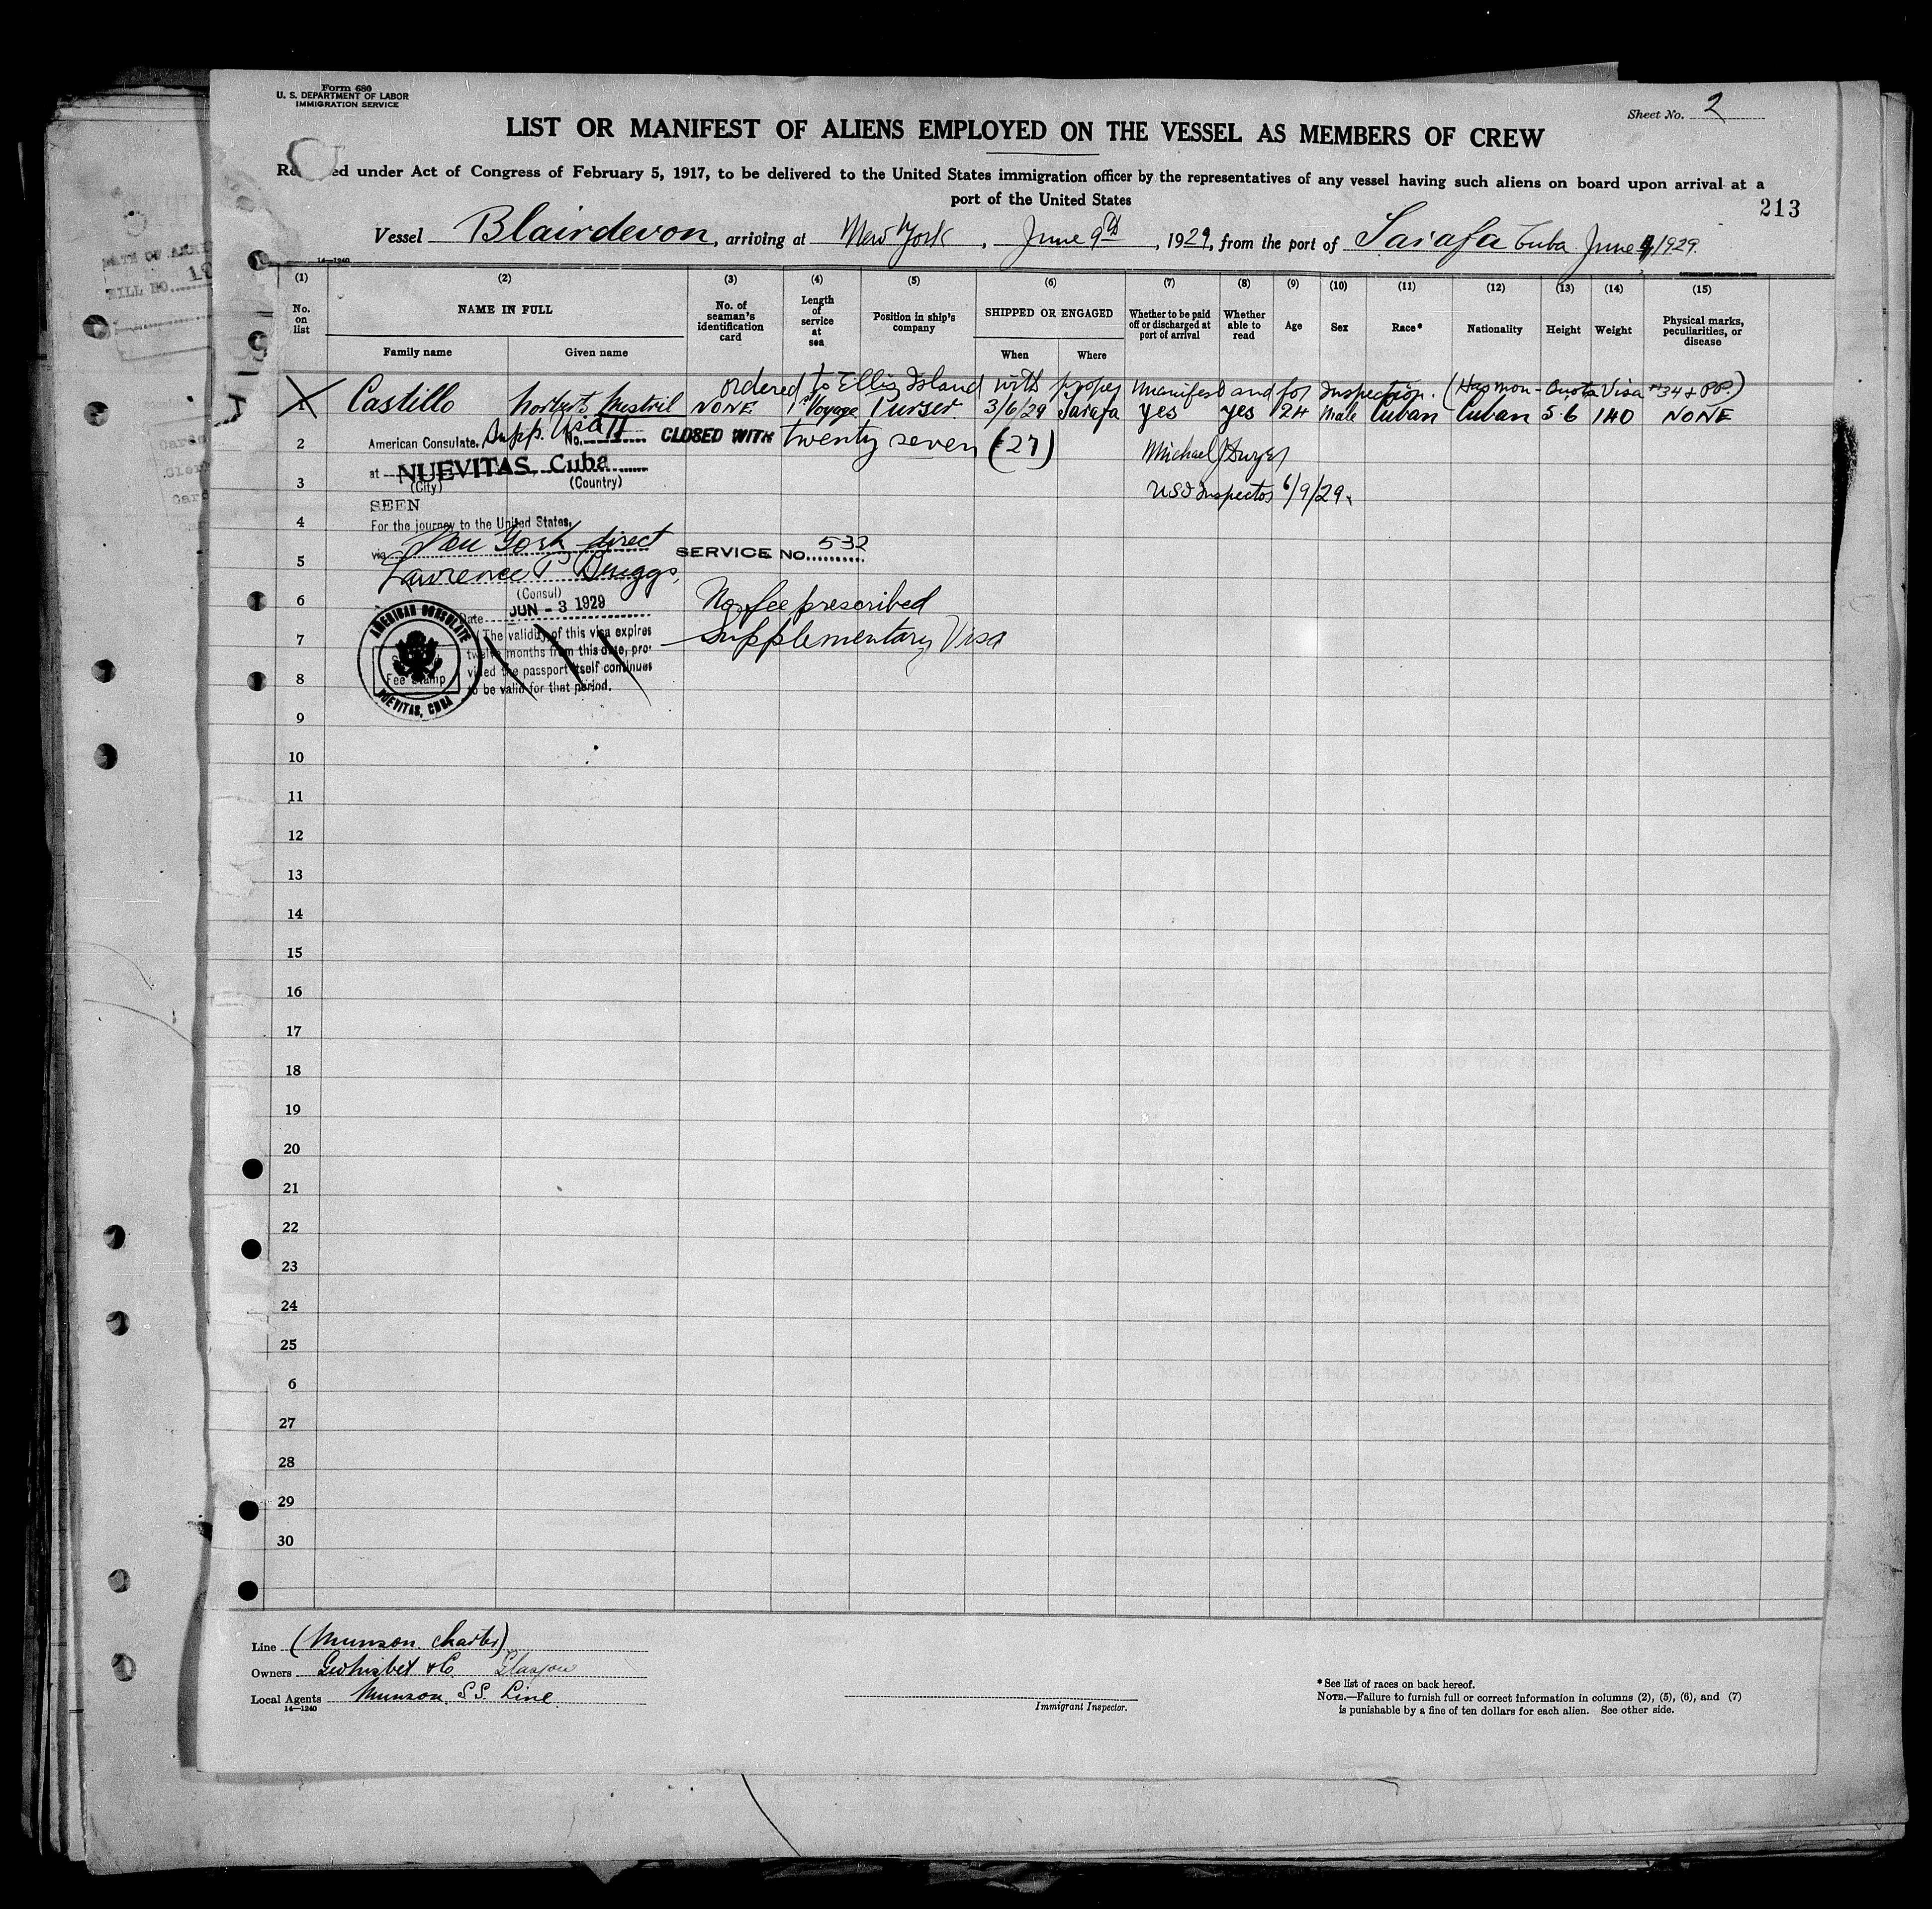 Form 680
U. S. DEPARTMENT OF LABOR
IMMIGRATION SERVICE
Sheet No. 2
LIST OR MANIFEST OF ALIENS EMPLOYED ON THE VESSEL AS MEMBERS OF CREW
ed under Act of Congress of February 5, 1917, to be delivered to the United States immigration officer by the representatives of any vessel having such aliens on board upon arrival at a
port of the United States
213
Vessel Blairdevon, arriving at New York, June 9th, 1929, from the port of Tarafa Cuba June 1929.
14—1240
(1) (2) (3) (4) (5) (6) (7) (8) (9) (10) (11) (12) (13) (14) (15)
No. on list
NAME IN FULL
Family name
Given name
No. of seaman's identification card
Length of service at sea
Position in ship's company
SHIPPED OR ENGAGED
When
Where
Whether to be paid off or discharged at port of arrival
Whether able to read
Age
Sex
Race*
Nationality
Height
Weight
Physical marks, peculiarities, or disease
ordered to Ellis Island with proper manifest and for Inspection. (Has non-Quota Visa #34 & PP.)
1 Castillo Norberto Mestril NONE 1st Voyage Purser 3/6/29 Tarafa Yes yes 24 Male Cuban Cuban 5.6 140 NONE
2 American Consulate, Supp. Visa No. 11 CLOSED WITH twenty seven (27)
Michael J Dwyer
at NUEVITAS, Cuba
(City) (Country)
3
US Inspector 6/9/29.
SEEN
4 For the journey to the United States,
via New York direct
SERVICE No. 532
5 Lawrence P Briggs,
(Consul)
6 Date JUN - 3 1929
No fee prescribed
7 (The validity of this visa expires
Supplementary Visa
twelve months from this date, pro-
vided the passport itself continues
8 to be valid for that period.
AMERICAN CONSULATE
Fee Stamp
NUEVITAS, CUBA
9
10
11
12
13
14
15
16
17
18
19
20
21
22
23
24
25
6
27
28
29
30
Line (Munson Charter)
Owners & Co. Glasgow
Local Agents Munson S.S. Line
14—1240
Immigrant Inspector.
*See list of races on back hereof.
NOTE.—Failure to furnish full or correct information in columns (2), (5), (6), and (7)
is punishable by a fine of ten dollars for each alien. See other side.